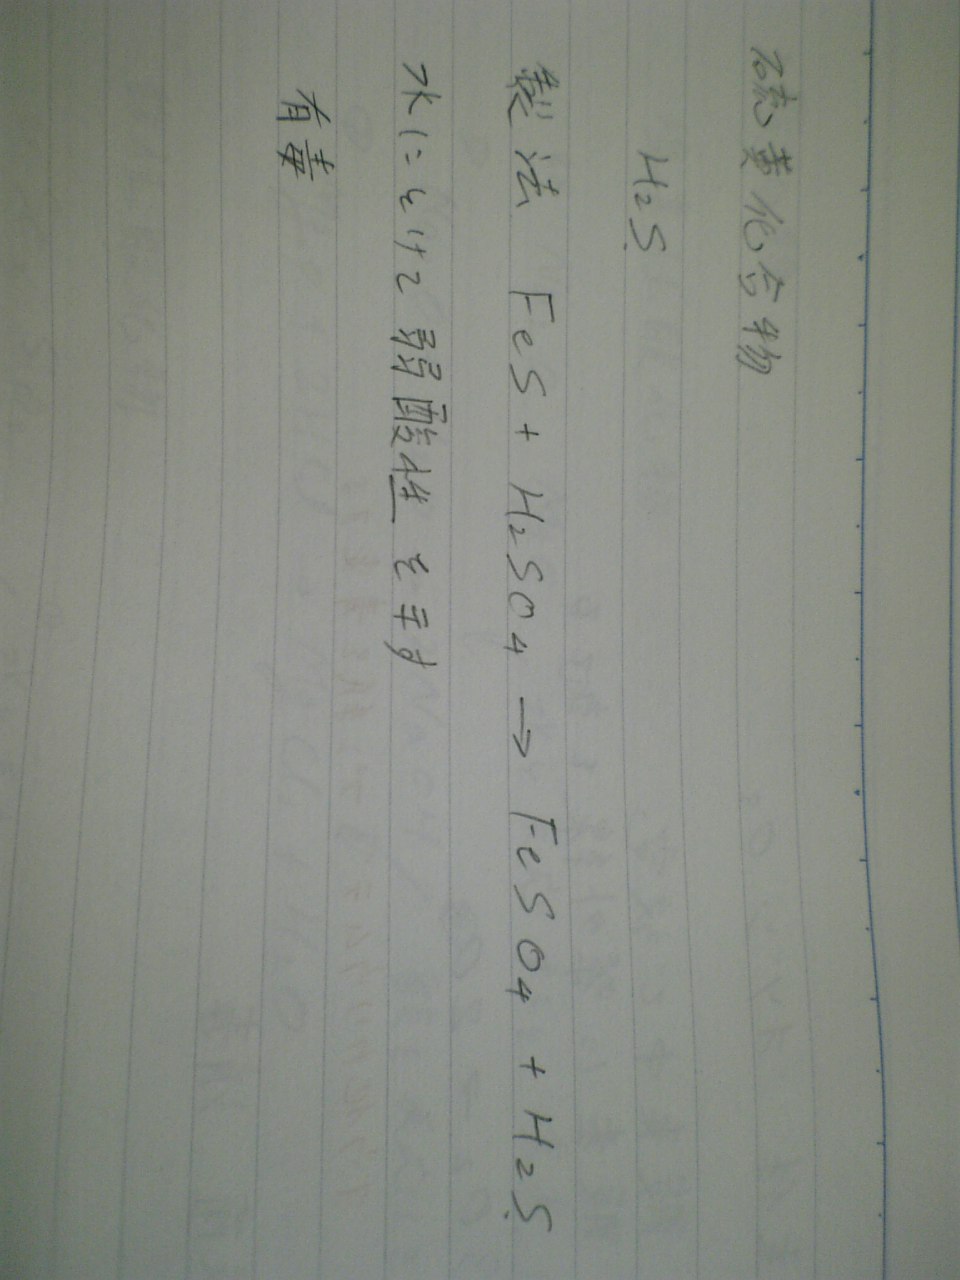 硫黄化合物
H2S
製法 FeS + H2SO4 → FeSO4 + H2S
水にとけて弱酸性を示す
有毒